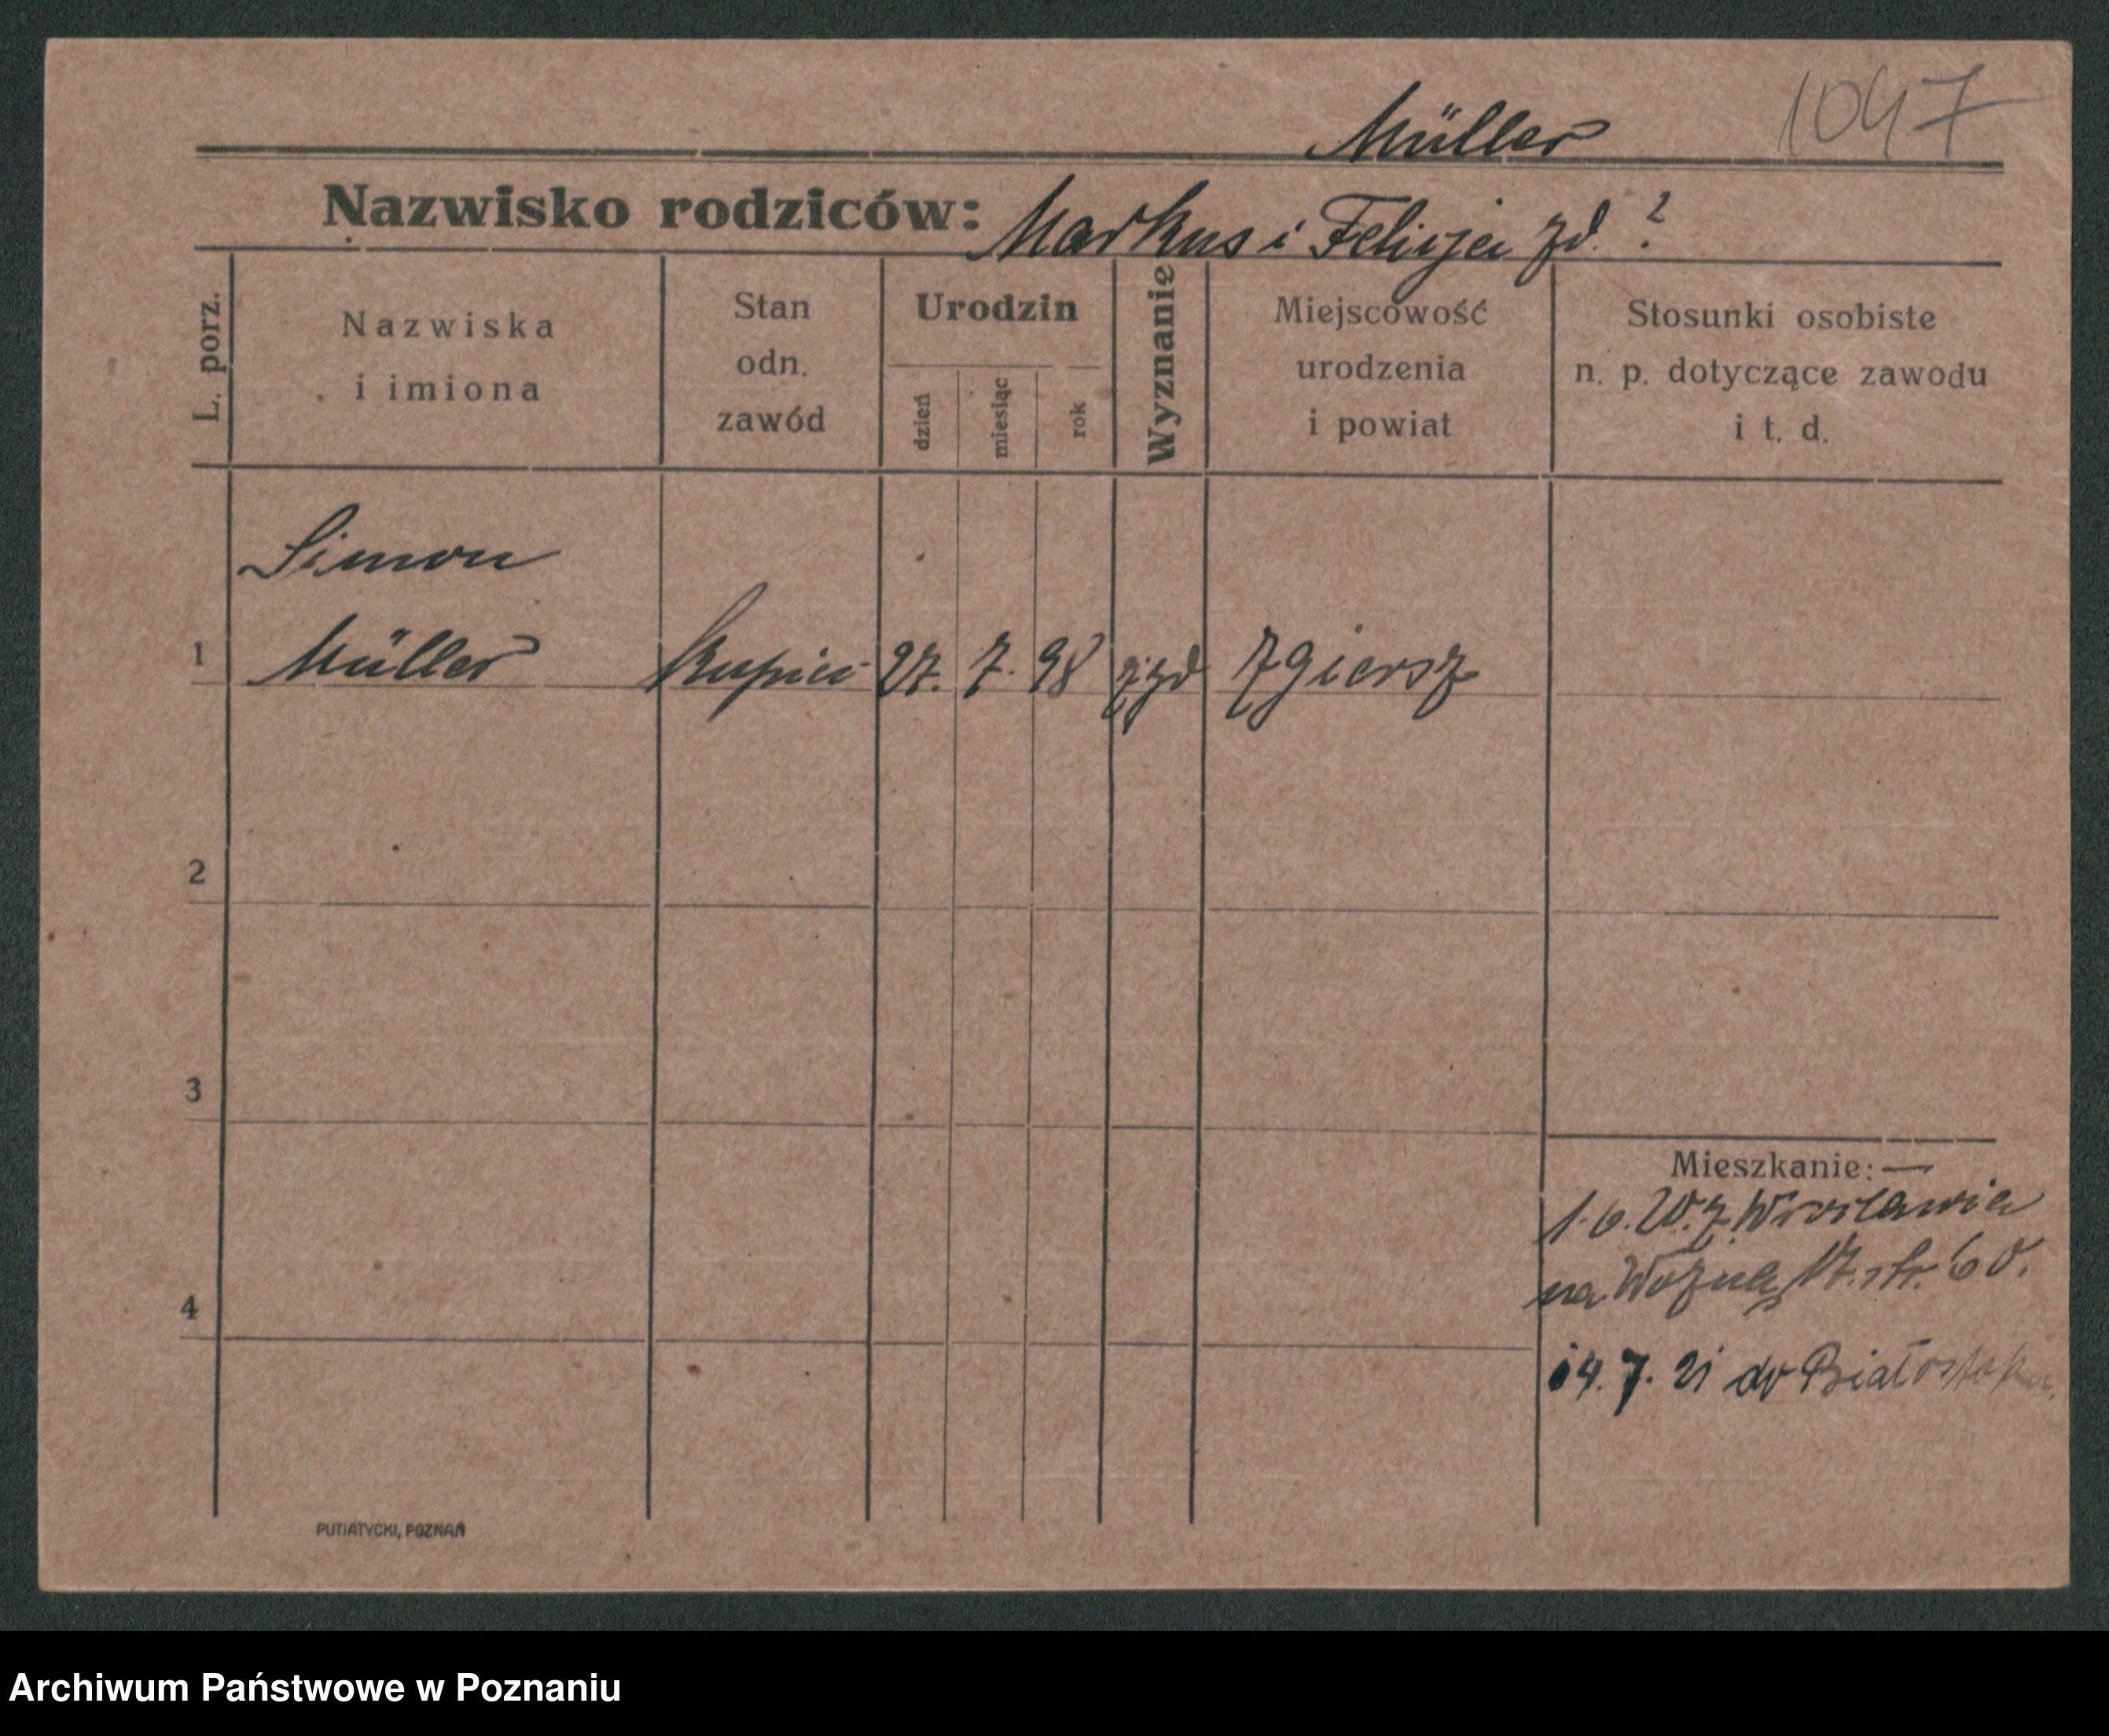 Müller 1047
Nazwisko rodziców: Markus i Felicja zd. ?
L. porz.
Nazwiska
i imiona
Stan
odn.
zawód
Urodzin
dzień
miesiąc
rok
Wyznanie
Miejscowość
urodzenia
i powiat
Stosunki osobiste
n. p. dotyczące zawodu
i t. d.
Simon
1 Müller kupiec 27. 7. 98 żyd Zgiersz
2
3
Mieszkanie: —
1.6.20. z Wrocławia
na Woźną 17. str. 60.
4
14. 7. 21 do Białostoku.
PUTIATYCKI, POZNAŃ
Archiwum Państwowe w Poznaniu